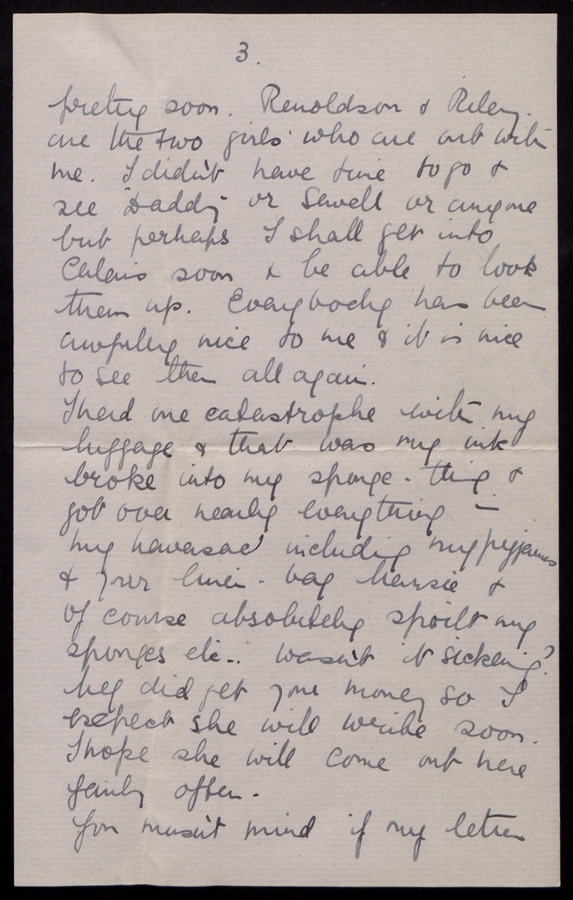 3.
pretty soon. Renoldson & Riley.
are the two girls who are out with
me. I didn't have time to go &
see "Daddy" or Sewell or anyone
but perhaps I shall get into
Calais soon & be able to look
them up. Everybody has been
awfully nice to me & it is nice
to see them all again.
I had one catastrophe with my
luggage & that was my ink
broke into my sponge-thing &
got over nearly everything in
my haversac including my pyjamas
& your linen-bag Mansie &
of course absolutely spoilt my
sponges etc.. wasn't it sickening?
Meg did get your money so I
expect she will write soon.
I hope she will come out here
fairly often.
You mustn't mind if my letters